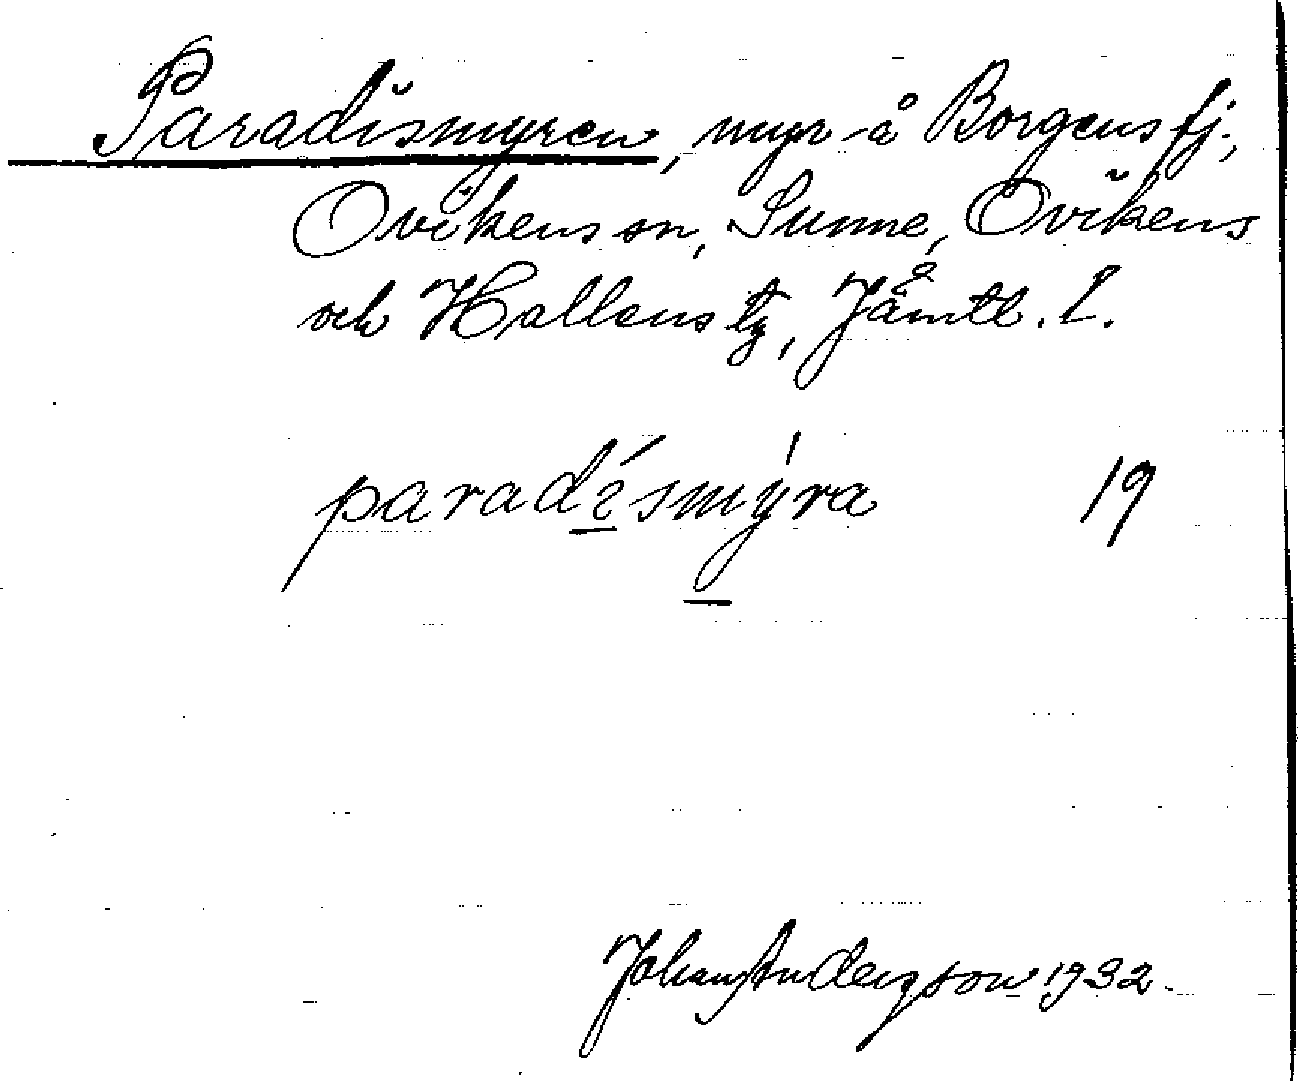 Paradismyren, myr å Borgens fj.,
Ovikens sn, Sunne, Ovikens
och Hallens tg, Jämtl. l.
paradísmýra 19
Johan Anderzson 1932.